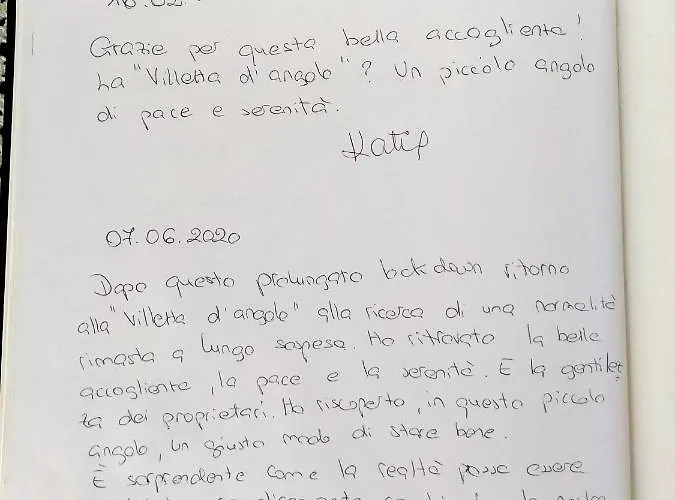 Grazie per questa bella accogliente!
La "Villetta d'angolo"? Un piccolo angolo
di pace e serenità.
07.06.2020
Dopo questo prolungato lockdown ritorno
alla "Villetta d'angolo" alla ricerca di una normalità
rimasta a lungo sospesa. Ho ritrovato la bella
accogliente, la pace e la serenità. E la gentilez
za dei proprietari. Ho riscoperto, in questo piccolo
angolo, un giusto modo di stare bene.
È sorprendente come la realtà possa essere